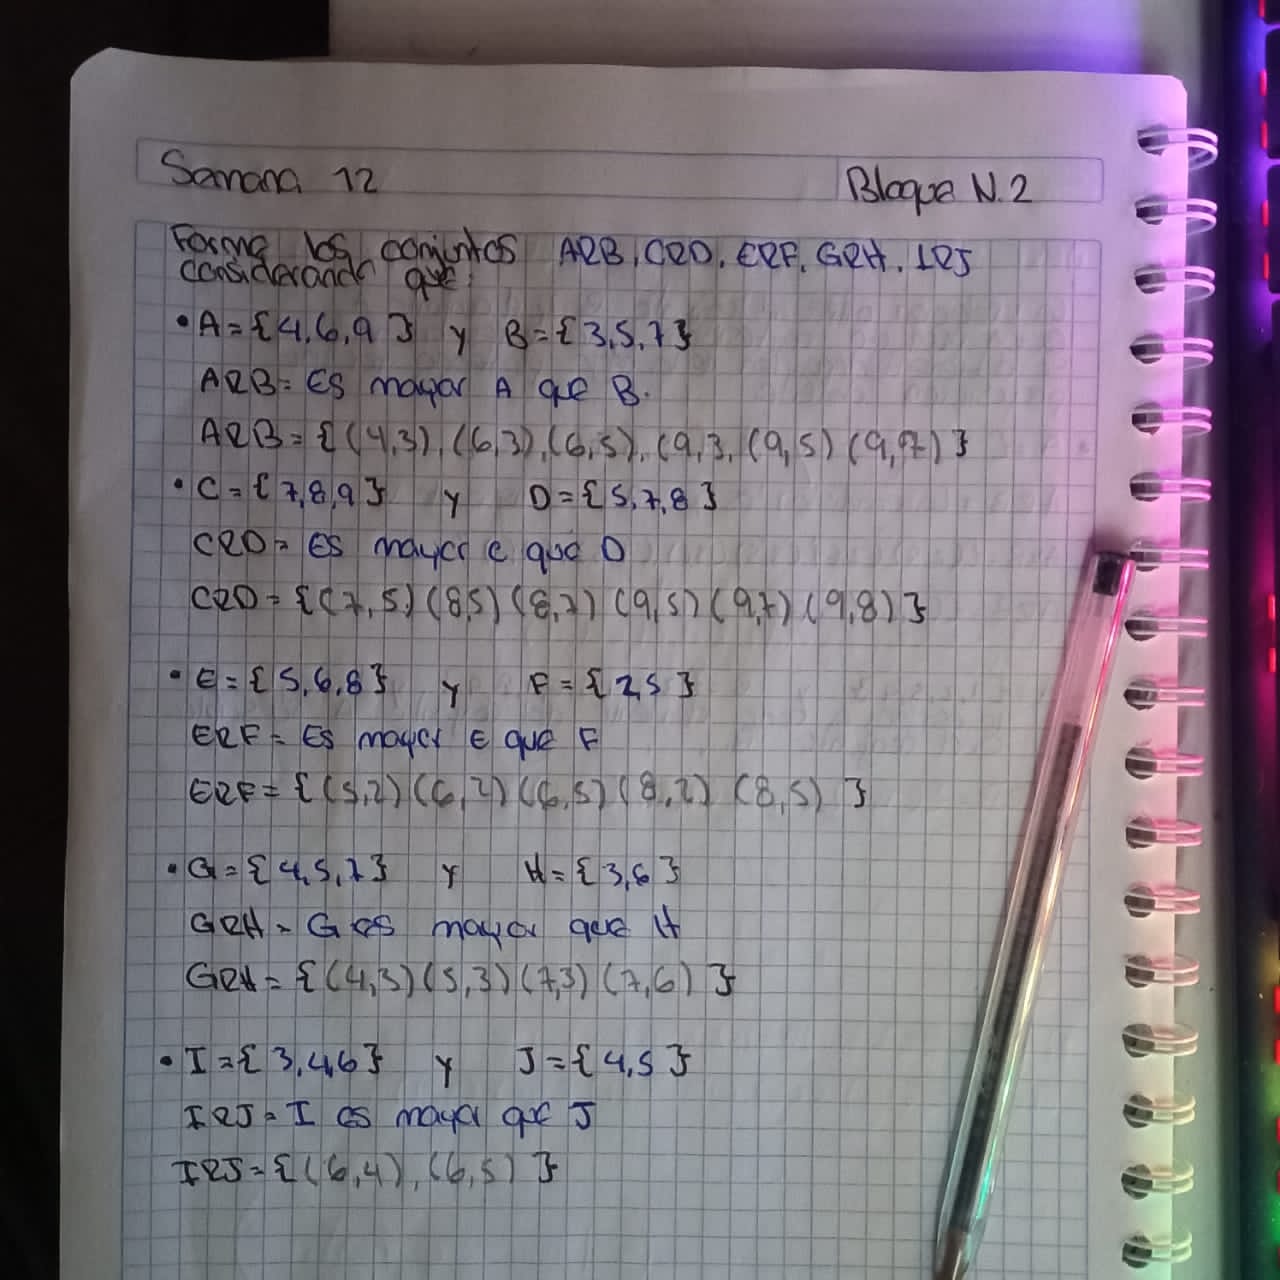 Semana 12
Bloque N.2
Forme los conjuntos ARB, CRD, ERF, GRH, IRJ
considerando que:
• A={4,6,9} y B={3,5,7}
ARB= Es mayor A que B.
ARB={(4,3),(6,3),(6,5),(9,3,(9,5)(9,7)}
• C={7,8,9} y D={5,7,8}
CRD= Es mayor C que D
CRD={(7,5)(8,5)(8,7)(9,5)(9,7)(9,8)}
• E={5,6,8} y F={2,5}
ERF= Es mayor E que F
ERF={(5,2)(6,2)(6,5)(8,2)(8,5)}
• G={4,5,7} y H={3,6}
GRH= G es mayor que H
GRH={(4,3)(5,3)(7,3)(7,6)}
• I={3,4,6} y J={4,5}
IRJ= I es mayor que J
IRJ={(6,4),(6,5)}